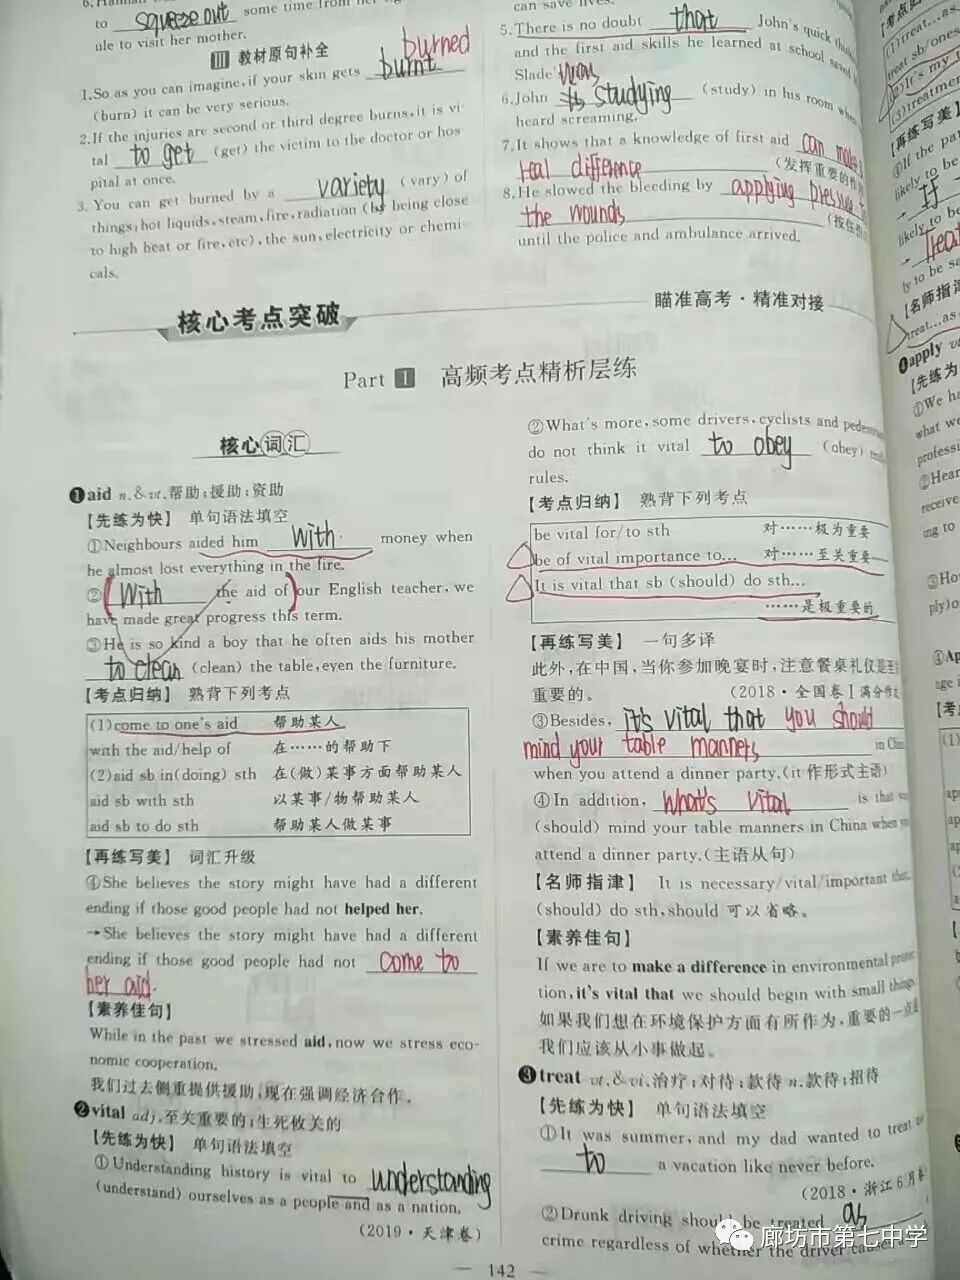 to squeeze out some time from her
ule to visit her mother.
Ⅲ 教材原句补全
burned
1.So as you can imagine, if your skin gets burnt
(burn) it can be very serious.
2.If the injuries are second or third degree burns, it is vi-
tal to get (get) the victim to the doctor or hos
pital at once.
3. You can get burned by a variety (vary) of
things: hot liquids, steam, fire, radiation (by being close
to high heat or fire, etc), the sun, electricity or chemi
cals.
can save lives.
5.There is no doubt that John's quick
and the first aid skills he learned at school saved
Slade
6.John is studying (study) in his room when
heard screaming.
was
7.It shows that a knowledge of first aid can make
real difference (发挥重要的作
8.He slowed the bleeding by applying pressure to
the wounds (按住
until the police and ambulance arrived.
核心考点突破
瞄准高考·精准对接
Part 1 高频考点精析层练
核心词汇
❶aid n.&vt.帮助;援助;资助
【先练为快】 单句语法填空
①Neighbours aided him with money when
he almost lost everything in the fire.
②With the aid of our English teacher, we
have made great progress this term.
③He is so kind a boy that he often aids his mother
to clean (clean) the table, even the furniture.
【考点归纳】 熟背下列考点
(1)come to one's aid 帮助某人
with the aid/help of 在……的帮助下
(2)aid sb in(doing) sth 在(做)某事方面帮助某人
aid sb with sth 以某事/物帮助某人
aid sb to do sth 帮助某人做某事
【再练写美】 词汇升级
④She believes the story might have had a different
ending if those good people had not helped her.
→She believes the story might have had a different
ending if those good people had not come to
her aid.
【素养佳句】
While in the past we stressed aid, now we stress eco-
nomic cooperation.
我们过去侧重提供援助,现在强调经济合作。
❷vital adj.至关重要的;生死攸关的
【先练为快】 单句语法填空
①Understanding history is vital to understanding
(understand) ourselves as a people and as a nation.
(2019·天津卷)
②What's more, some drivers, cyclists and
do not think it vital to obey (obey)
rules.
【考点归纳】 熟背下列考点
be vital for/to sth 对……极为重要
be of vital importance to... 对……至关重要
It is vital that sb (should) do sth...
……是极重要的
【再练写美】 一句多译
此外,在中国,当你参加晚宴时,注意餐桌礼仪是至
重要的。 (2018·全国卷Ⅰ满分作文
③Besides, it's vital that you should
mind your table manners in
when you attend a dinner party.(it 作形式主语)
④In addition, what's vital is that
(should) mind your table manners in China when
attend a dinner party.(主语从句)
【名师指津】 It is necessary/vital/important that
(should) do sth, should 可以省略。
【素养佳句】
If we are to make a difference in environmental
tion, it's vital that we should begin with small things
如果我们想在环境保护方面有所作为,重要的一点是
我们应该从小事做起。
❸treat vt.&vi.治疗;对待;款待 n.款待;招待
【先练为快】 单句语法填空
①It was summer, and my dad wanted to treat
to a vacation like never before.
(2018·浙江6月卷
②Drunk driving should be treated as
crime regardless of whether the driver
— 142 —
(1)treat...as
treat sb/ones
(2)It's my
(3)treatment
【再练写美】
④If the
likely to be
→ If
likely to be
→ Treat
ly to be
【名师指津】
treat...as
❹apply
【先练为
①We
what we
professi
②Hear
receive
ing to
③How
ply)
④
age i
【考
(1)
廊坊市第七中学